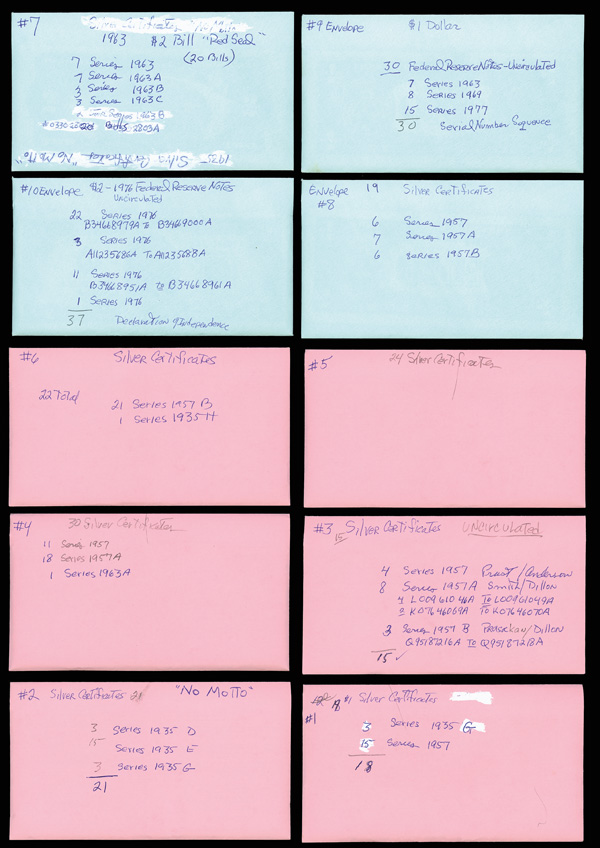 #7 Silver Certificates
1963 $2 Bill "Red Seal"
(20 Bills)
7 Series 1963
7 Series 1963A
3 Series 1963B
3 Series 1963C
1963B
20 Bills 2803A
1935 - Silver Certificates "No Motto"
#9 Envelope $1 Dollar
30 Federal Reserve Notes - Uncirculated
7 Series 1963
8 Series 1969
15 Series 1977
30 Serial Number Sequence
#10 Envelope $2 - 1976 Federal Reserve Notes
Uncirculated
22 Series 1976
B34668979A to B34669000A
3 Series 1976
A11235686A To A11235688A
11 Series 1976
B34668951A to B34668961A
1 Series 1976
37 Declaration of Independence
Envelope 19 Silver Certificates
#8
6 Series 1957
7 Series 1957A
6 Series 1957B
#6 Silver Certificates
22 Total
21 Series 1957 B
1 Series 1935 H
#5 24 Silver Certificates
#4 30 Silver Certificates
11 Series 1957
18 Series 1957A
1 Series 1963A
#3 Silver Certificates Uncirculated
15
4 Series 1957 Priest/Anderson
8 Series 1957A Smith/Dillon
4 L00961046A To L00961049A
2 K07646069A To K07646070A
3 Series 1957 B /Dillon
Q95187216A To Q95187218A
15 ✓
#2 Silver Certificates 21 "No Motto"
3 Series 1935 D
15 Series 1935 E
3 Series 1935 G
21
18 $1 Silver Certificates
#1
3 Series 1935 G
15 Series 1957
18